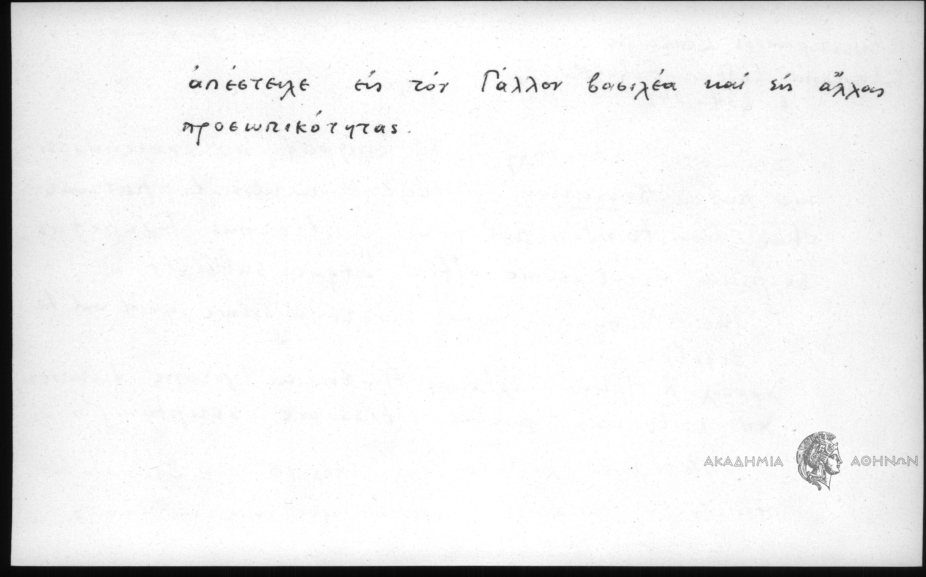 ἀπέστειλε εἰς τόν Γάλλον βασιλέα καί εἰς ἄλλας
προσωπικότητας.
ΑΚΑΔΗΜΙΑ ΑΘΗΝΩΝ